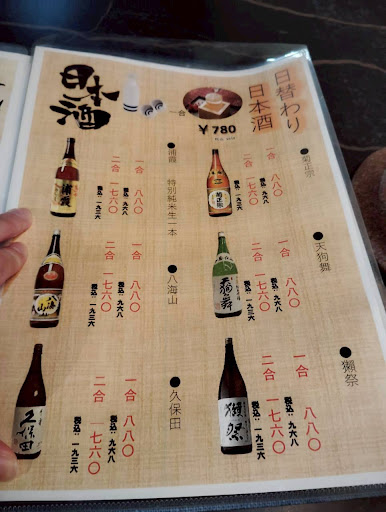 日本酒
日替わり
日本酒
一合
￥780
●菊正宗
一合 八八〇
税込：九六八
二合 一七六〇
税込：一九三六
菊正宗
●浦霞 特別純米生一本
一合 八八〇
税込：九六八
二合 一七六〇
税込：一九三六
浦霞
●天狗舞
一合 八八〇
税込：九六八
二合 一七六〇
税込：一九三六
天狗舞
●八海山
一合 八八〇
税込：九六八
二合 一七六〇
税込：一九三六
八海山
●獺祭
一合 八八〇
税込：九六八
二合 一七六〇
税込：一九三六
獺祭
●久保田
一合 八八〇
税込：九六八
二合 一七六〇
税込：一九三六
久保田